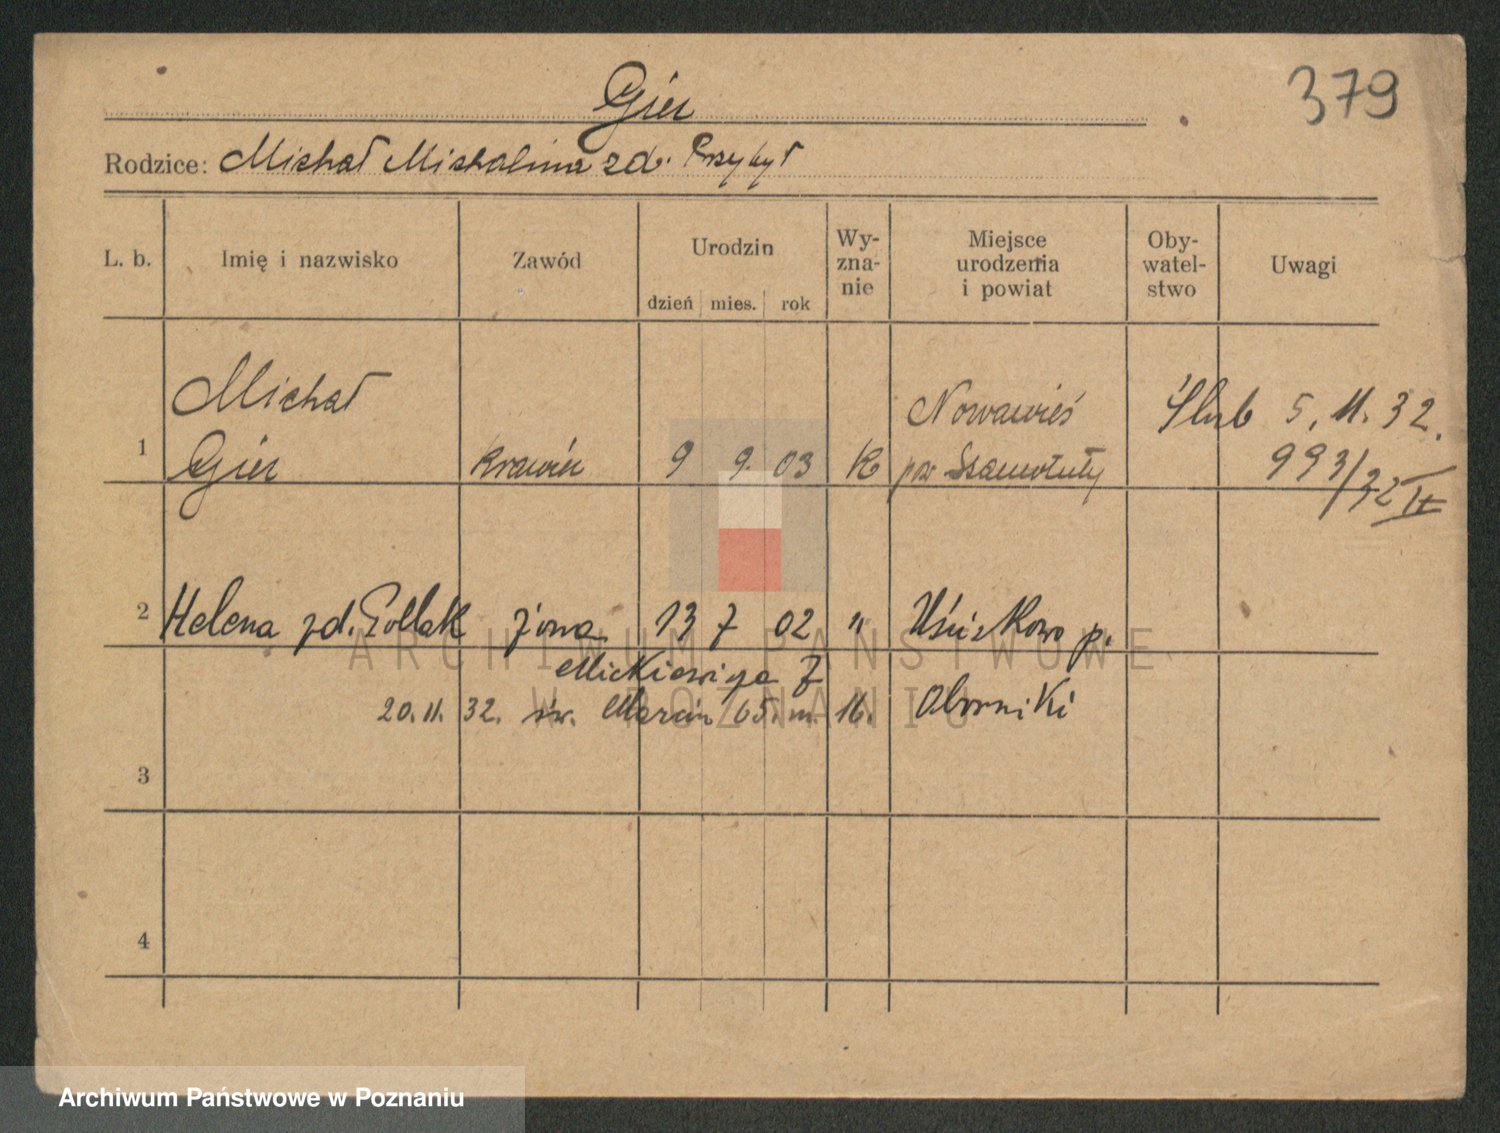 379
Gier
Rodzice: Michał Michalina zd. Przybył
L. b. Imię i nazwisko Zawód Urodzin dzień mies. rok Wy-zna-nie Miejsce urodzenia i powiat Oby-watel-stwo Uwagi
Michał Nowawieś Ślub 5. 11. 32.
1 Gier krawiec 9 9. 03 K pow Szamotuły 993/32 II
2 Helena zd. Pollak żona 13 7 02 " Uścikowo p.
Mickiewicza 7
20. 11. 32. św. Marcin 65. m. 16. Oborniki
3
4
ARCHIWUM PAŃSTWOWE
W POZNANIU
Archiwum Państwowe w Poznaniu